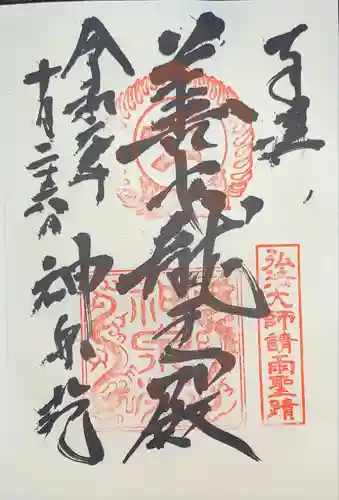 奉拝
善女龍王殿
令和元年
十月二十六日
神泉苑
弘法大師請雨聖蹟